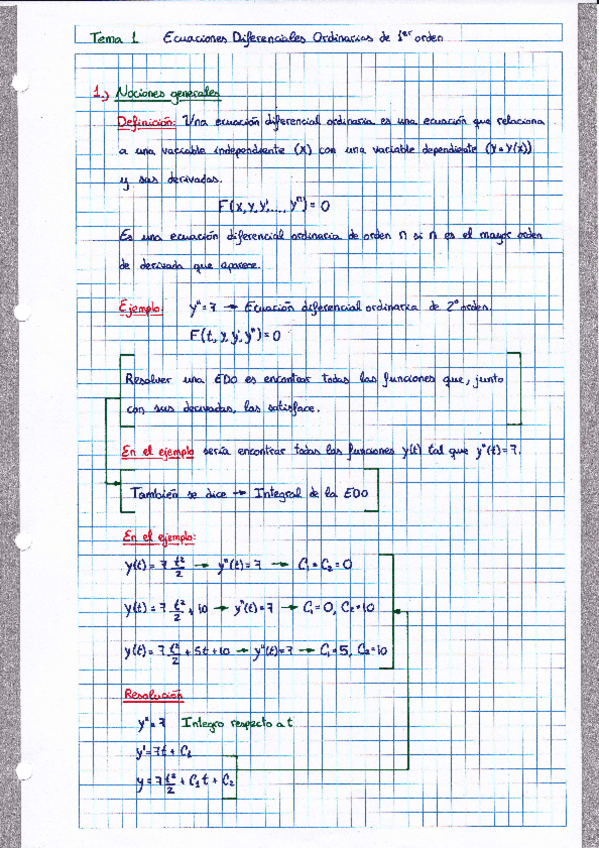 Tema 1 Ecuaciones Diferenciales Ordinarias de 1er orden
1.) Nociones generales
Definición: Una ecuación diferencial ordinaria es una ecuación que relaciona
a una variable independiente (x) con una variable dependiente (y=y(x))
y sus derivadas.
F(x,y,y',...,yⁿ)=0
Es una ecuación diferencial ordinaria de orden n si n es el mayor orden
de derivada que aparece.
Ejemplo: y"=7 → Ecuación diferencial ordinaria de 2º orden.
F(t,y,y',y")=0
Resolver una EDO es encontrar todas las funciones que, junto
con sus derivadas, las satisface.
En el ejemplo sería encontrar todas las funciones y(t) tal que y"(t)=7.
También se dice → Integral de la EDO
En el ejemplo:
y(t)=7 t²/2 → y"(t)=7 → C₁=C₂=0
y(t)=7 t²/2 + 10 → y"(t)=7 → C₁=0, C₂=10
y(t)=7 t²/2 + 5t + 10 → y"(t)=7 → C₁=5, C₂=10
Resolución
y"=7 Integro respecto a t
y'=7t+C₁
y=7 t²/2 + C₁t + C₂